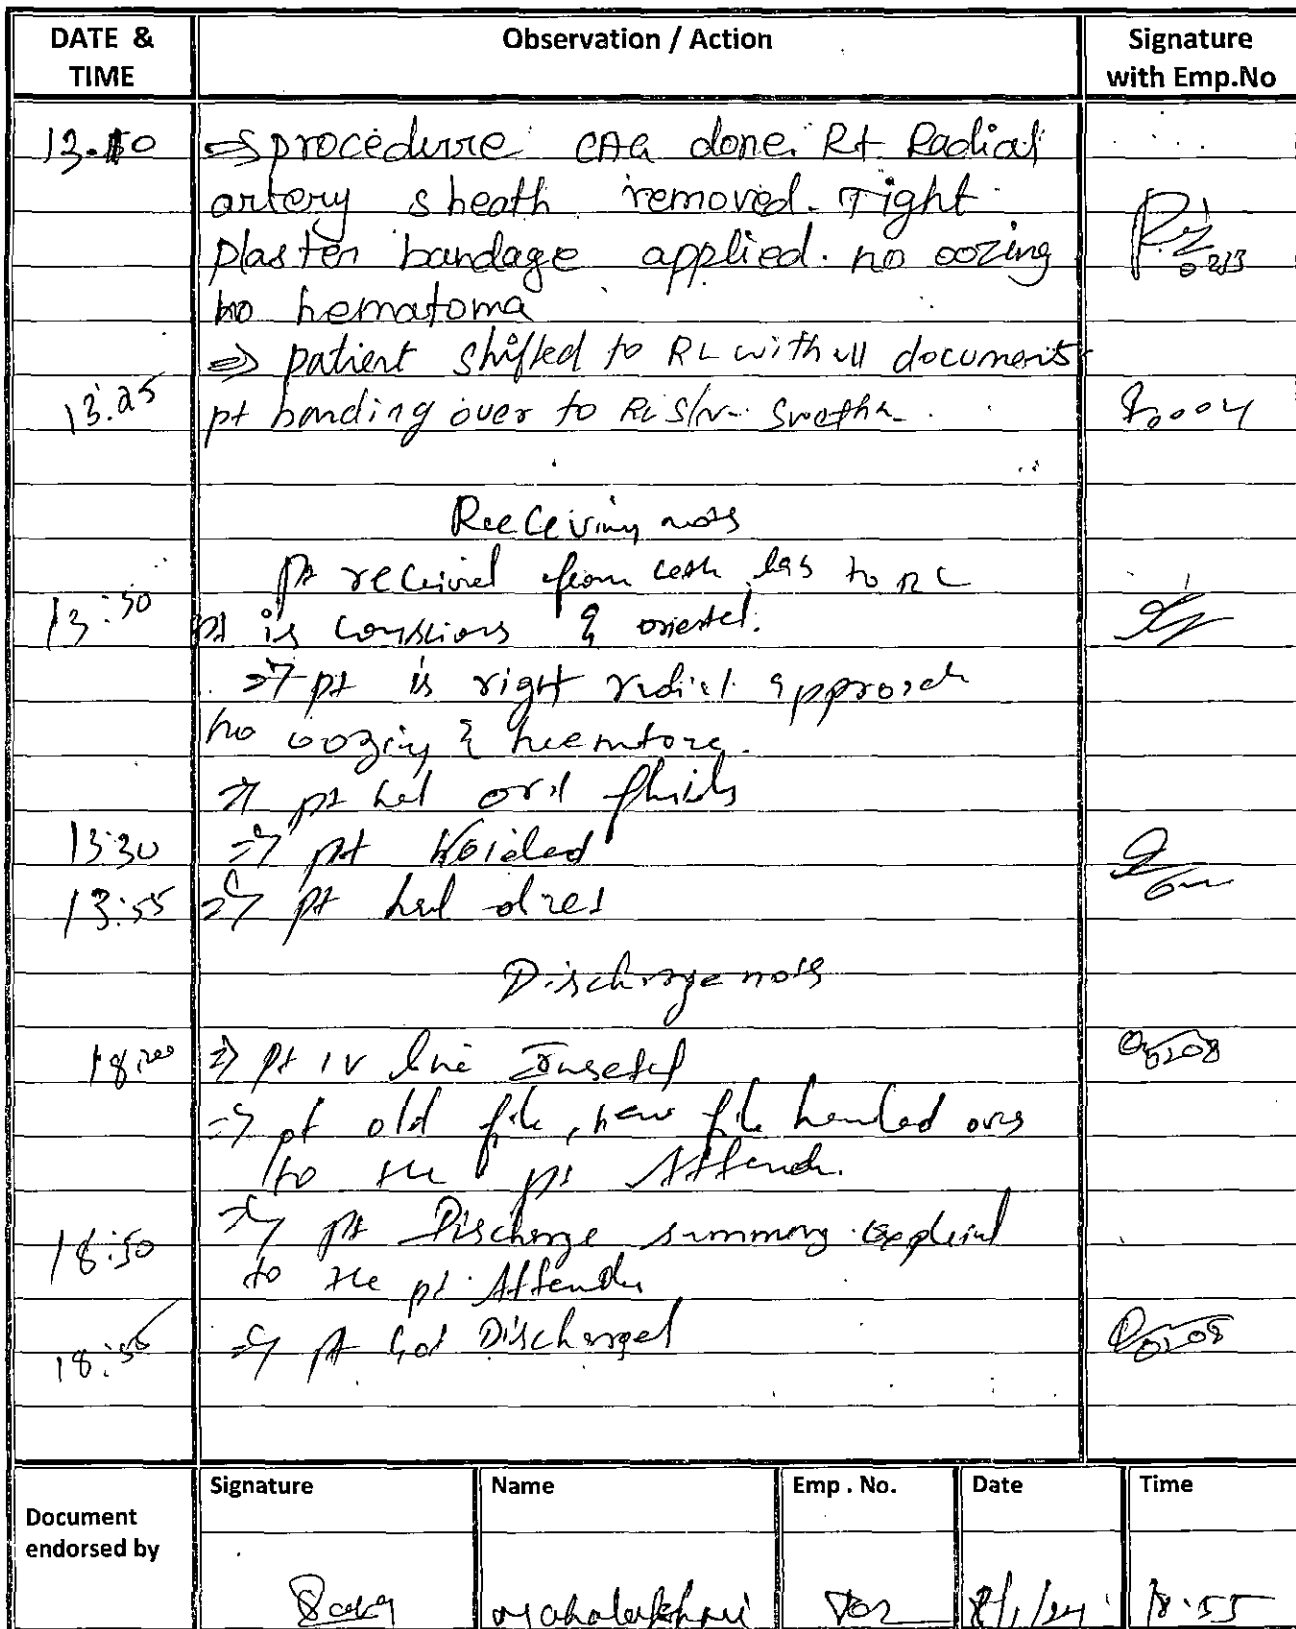 DATE & TIME
Observation / Action
Signature with Emp.No
13.10
⇒ procedurre CAG done. Rt Radial
artery sheath removed. Tight
plaster bandage applied. no oozing
no hematoma
0213
⇒ patient shifted to RL with all document
13.25
pt handing over to RL S/N- Swetha.
Receiving nots
pt received from cath lab to RL
13:50
pt is conscious & oriented.
⇒ pt is right radial approach
no oozing & heematoma.
⇒ pt had oral fluids
13:30
⇒ pt Voided
13:55
⇒ pt had
Discharge nots
18:20
⇒ pt IV line
⇒ pt old file, new file handed over
to the pt Attender.
18:50
⇒ pt Discharge summary explaind
to the pt Attender
18:55
⇒ pt Got Discharged
Document endorsed by
Signature
Name
Emp . No.
Date
Time
Mahalakshmi
8/1/24
18:55